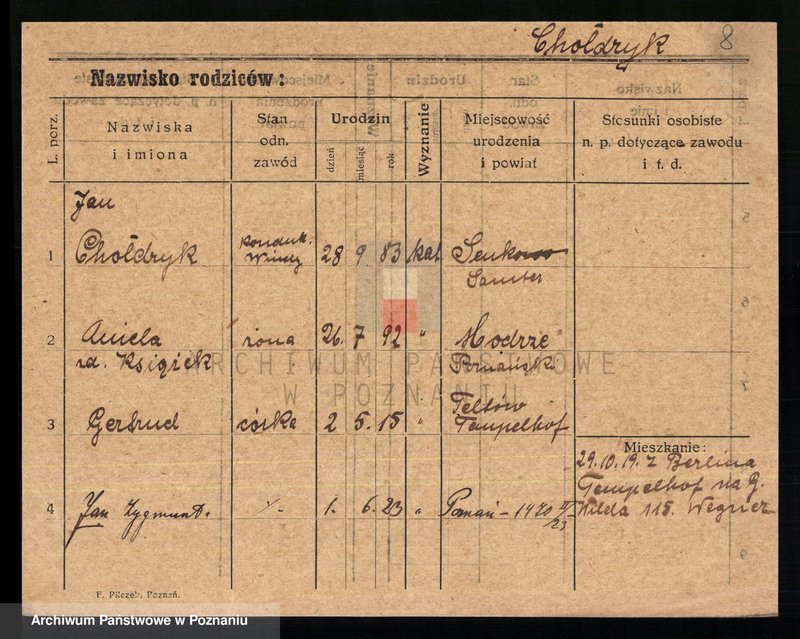 Chołdryk 8
Nazwisko rodziców:
L. porz.
Nazwiska
i imiona
Stan
odn.
zawód
Urodzin
dzień
miesiąc
rok
Wyznanie
Miejscowość
urodzenia
i powiat
Stosunki osobiste
n. p. dotyczące zawodu
i t. d.
Jan
1 Chołdryk 28 9. 83 kat
Samter
2 Aniela żona 26. 7 92 " Modrze
zd. Książek
3 Gertrud córka 2 5. 15 " Teltów
Tempelhof
Mieszkanie:
29.10.19. z Berlina
Tempelhof na G.
Wilda 115. Wegner
4 Jan Zygmunt. 1. 6. 23 " Poznań - 1470
F. Pilczek, Poznań.
ARCHIWUM PAŃSTWOWE
W POZNANIU
Archiwum Państwowe w Poznaniu